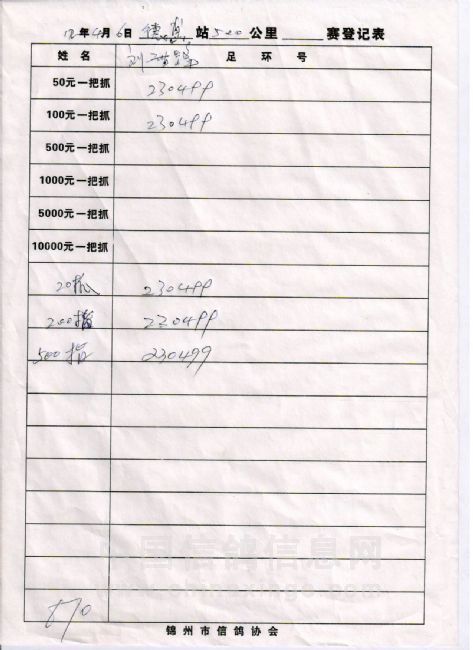 12年4月6日 德州 站 500 公里 赛登记表
姓名 足环号
50元一把抓 230499
100元一把抓 230499
500元一把抓
1000元一把抓
5000元一把抓
10000元一把抓
20抓 230499
200指 230499
500指 230499
中国信鸽信息网
www.chinaxinge.com
870
锦州市信鸽协会